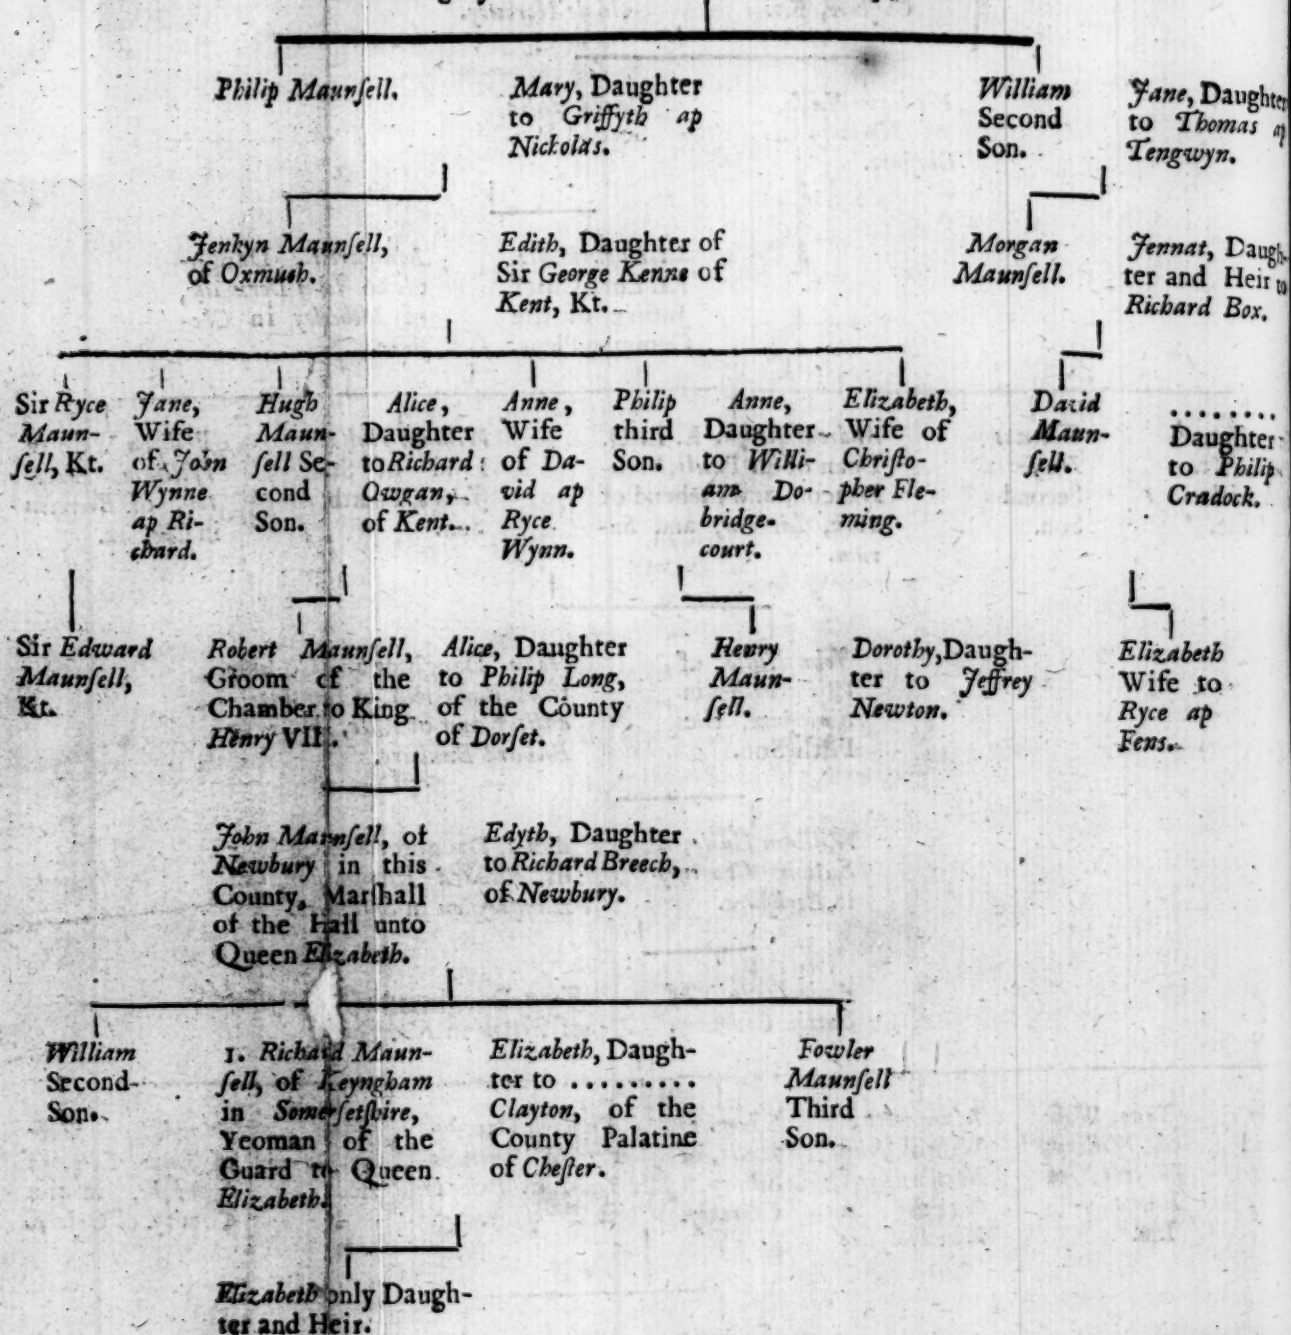 Philip Maunſell.
Mary, Daughter
to Griffyth ap
Nickolas.
William
Second
Son.
Jane, Daughter
to Thomas ap
Tengwyn.
Jenkyn Maunſell,
of Oxmuth.
Edith, Daughter of
Sir George Kenne of
Kent, Kt.
Morgan
Maunſell.
Jennat, Daugh-
ter and Heir to
Richard Box.
Sir Ryce
Maun-
ſell, Kt.
Jane,
Wife
of John
Wynne
ap Ri-
chard.
Hugh
Maun-
ſell Se-
cond
Son.
Alice,
Daughter
to Richard
Owgan,
of Kent.
Anne,
Wife
of Da-
vid ap
Ryce
Wynn.
Philip
third
Son.
Anne,
Daughter
to Willi-
am Do-
bridge-
court.
Elizabeth,
Wife of
Chriſto-
pher Fle-
ming.
David
Maun-
ſell.
........
Daughter
to Philip
Cradock.
Sir Edward
Maunſell,
Kt.
Robert Maunſell,
Groom of the
Chamber to King
Henry VII.
Alice, Daughter
to Philip Long,
of the County
of Dorſet.
Henry
Maun-
ſell.
Dorothy, Daugh-
ter to Jeffrey
Newton.
Elizabeth
Wife to
Ryce ap
Fens.
John Maunſell, of
Newbury in this
County, Marſhall
of the Hall unto
Queen Elizabeth.
Edyth, Daughter
to Richard Breech,
of Newbury.
William
Second
Son.
1. Richard Maun-
ſell, of Keyngham
in Somerſetſhire,
Yeoman of the
Guard to Queen
Elizabeth.
Elizabeth, Daugh-
ter to .........
Clayton, of the
County Palatine
of Cheſter.
Fowler
Maunſell
Third
Son.
Elizabeth only Daugh-
ter and Heir.